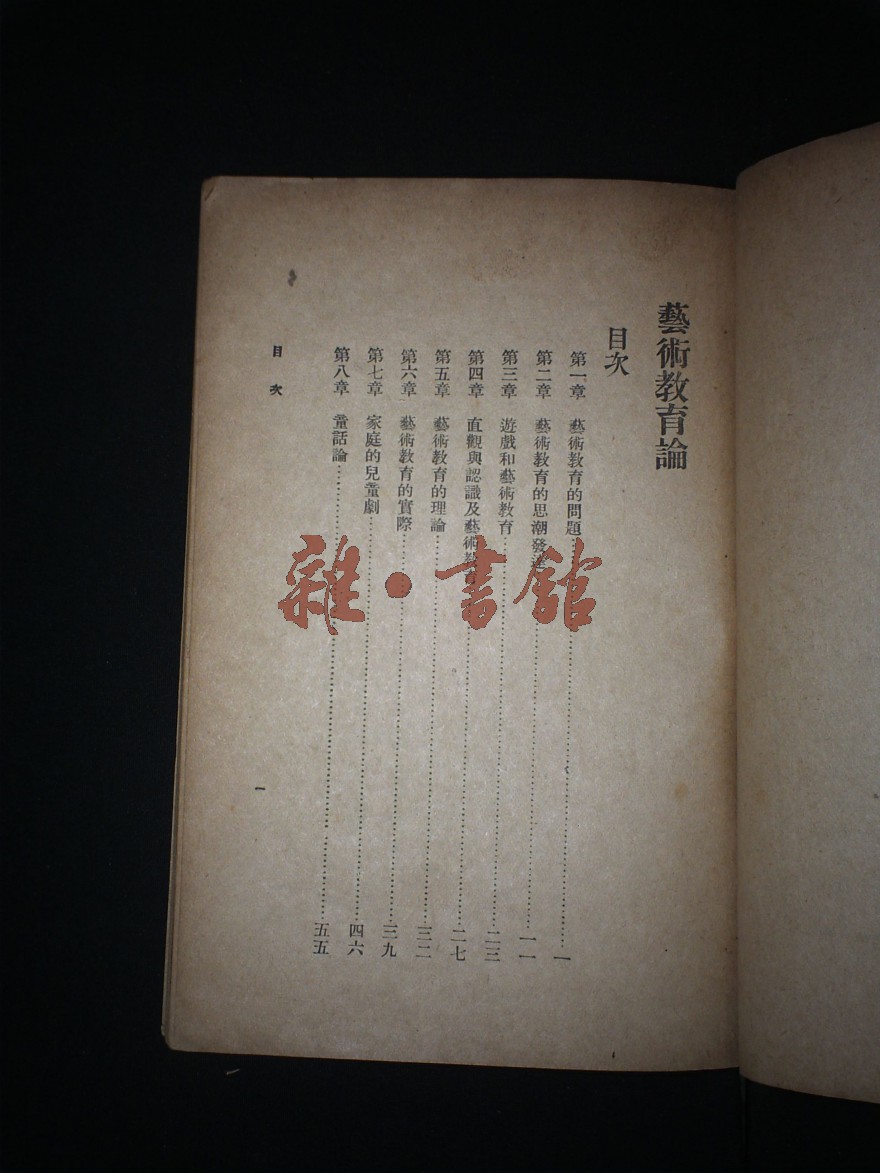 藝術教育論
目次
第一章　藝術教育的問題……一
第二章　藝術教育的思潮發達……一一
第三章　遊戲和藝術教育……二三
第四章　直觀與認識及藝術教育……二七
第五章　藝術教育的理論……三二
第六章　藝術教育的實際……三九
第七章　家庭的兒童劇……四六
第八章　童話論……五五
目次
一
雜·書館